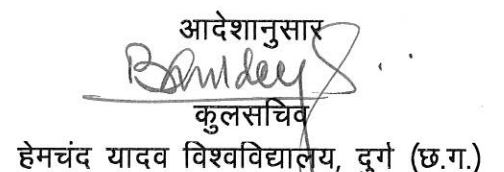 आदेशानुसार
कुलसचिव
हेमचंद यादव विश्वविद्यालय, दुर्ग (छ.ग.)